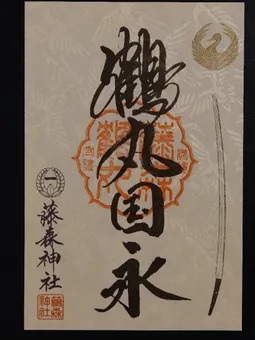 鶴丸国永
藤森神社
藤森
神社